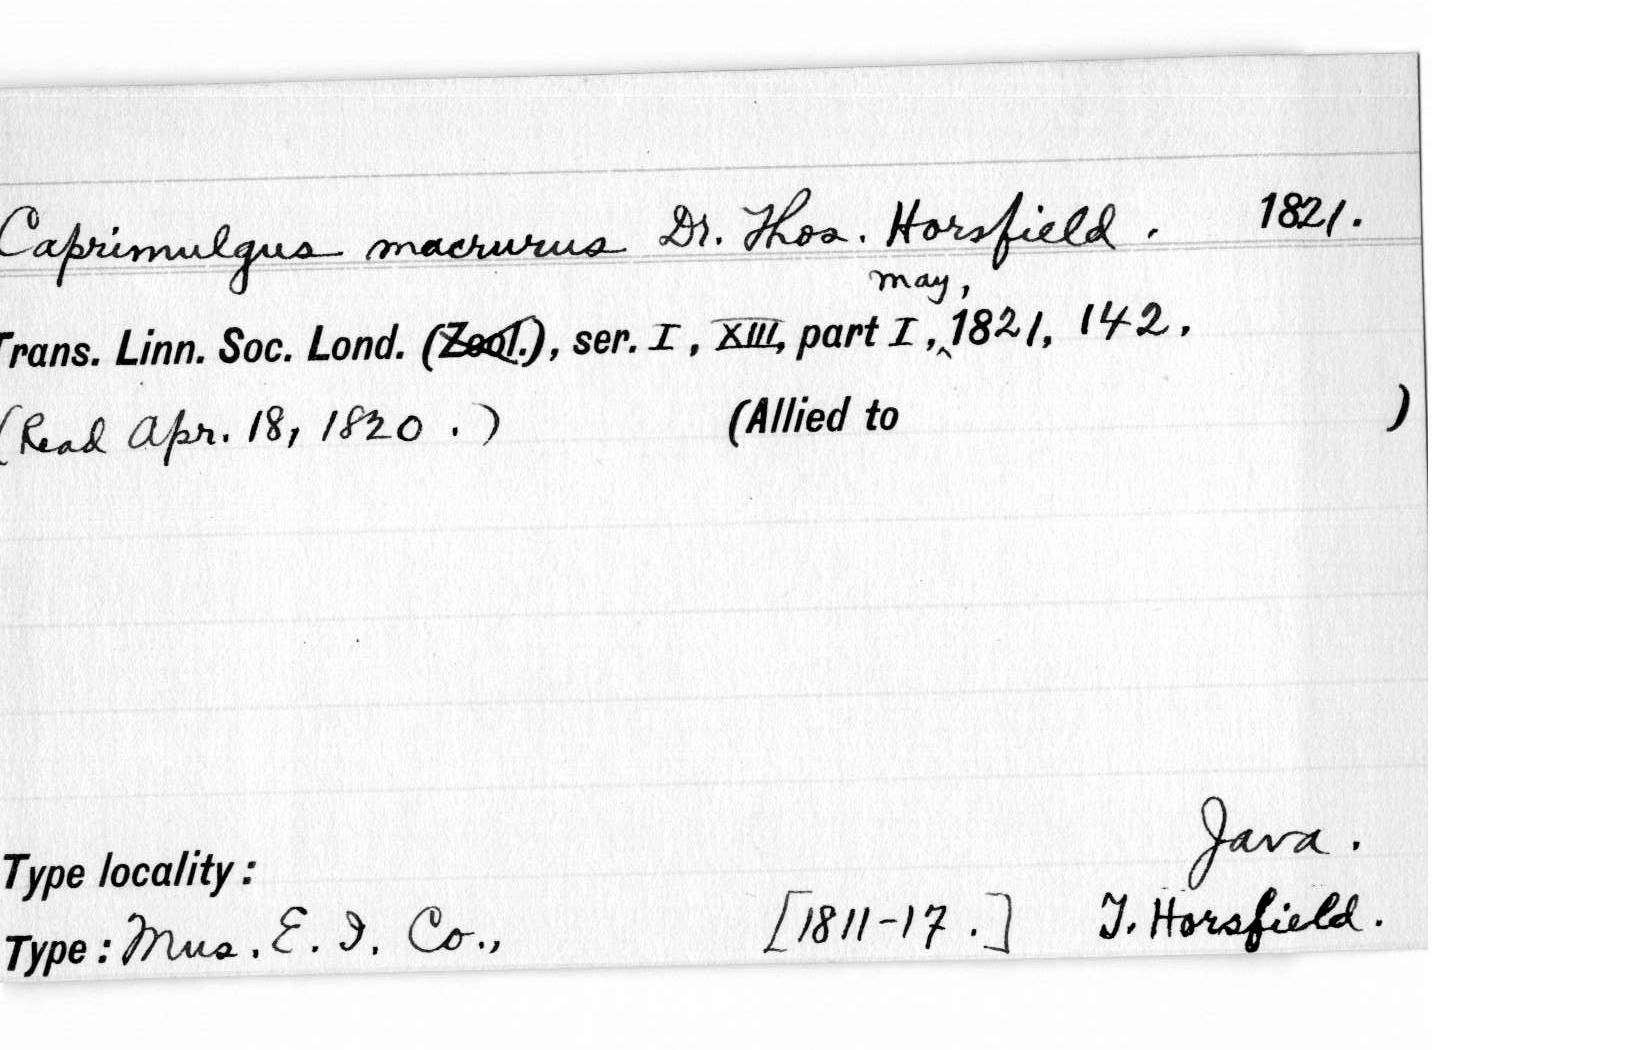 Caprimulgus macrurus Dr. Thos. Horsfield. 1821.
may,
Trans. Linn. Soc. Lond. (Zool.), ser. I, XIII, part I, 1821, 142.
(Read Apr. 18, 1820.) (Allied to )
Java.
Type locality:
Type: Mus. E. I. Co., [1811-17.] T. Horsfield.